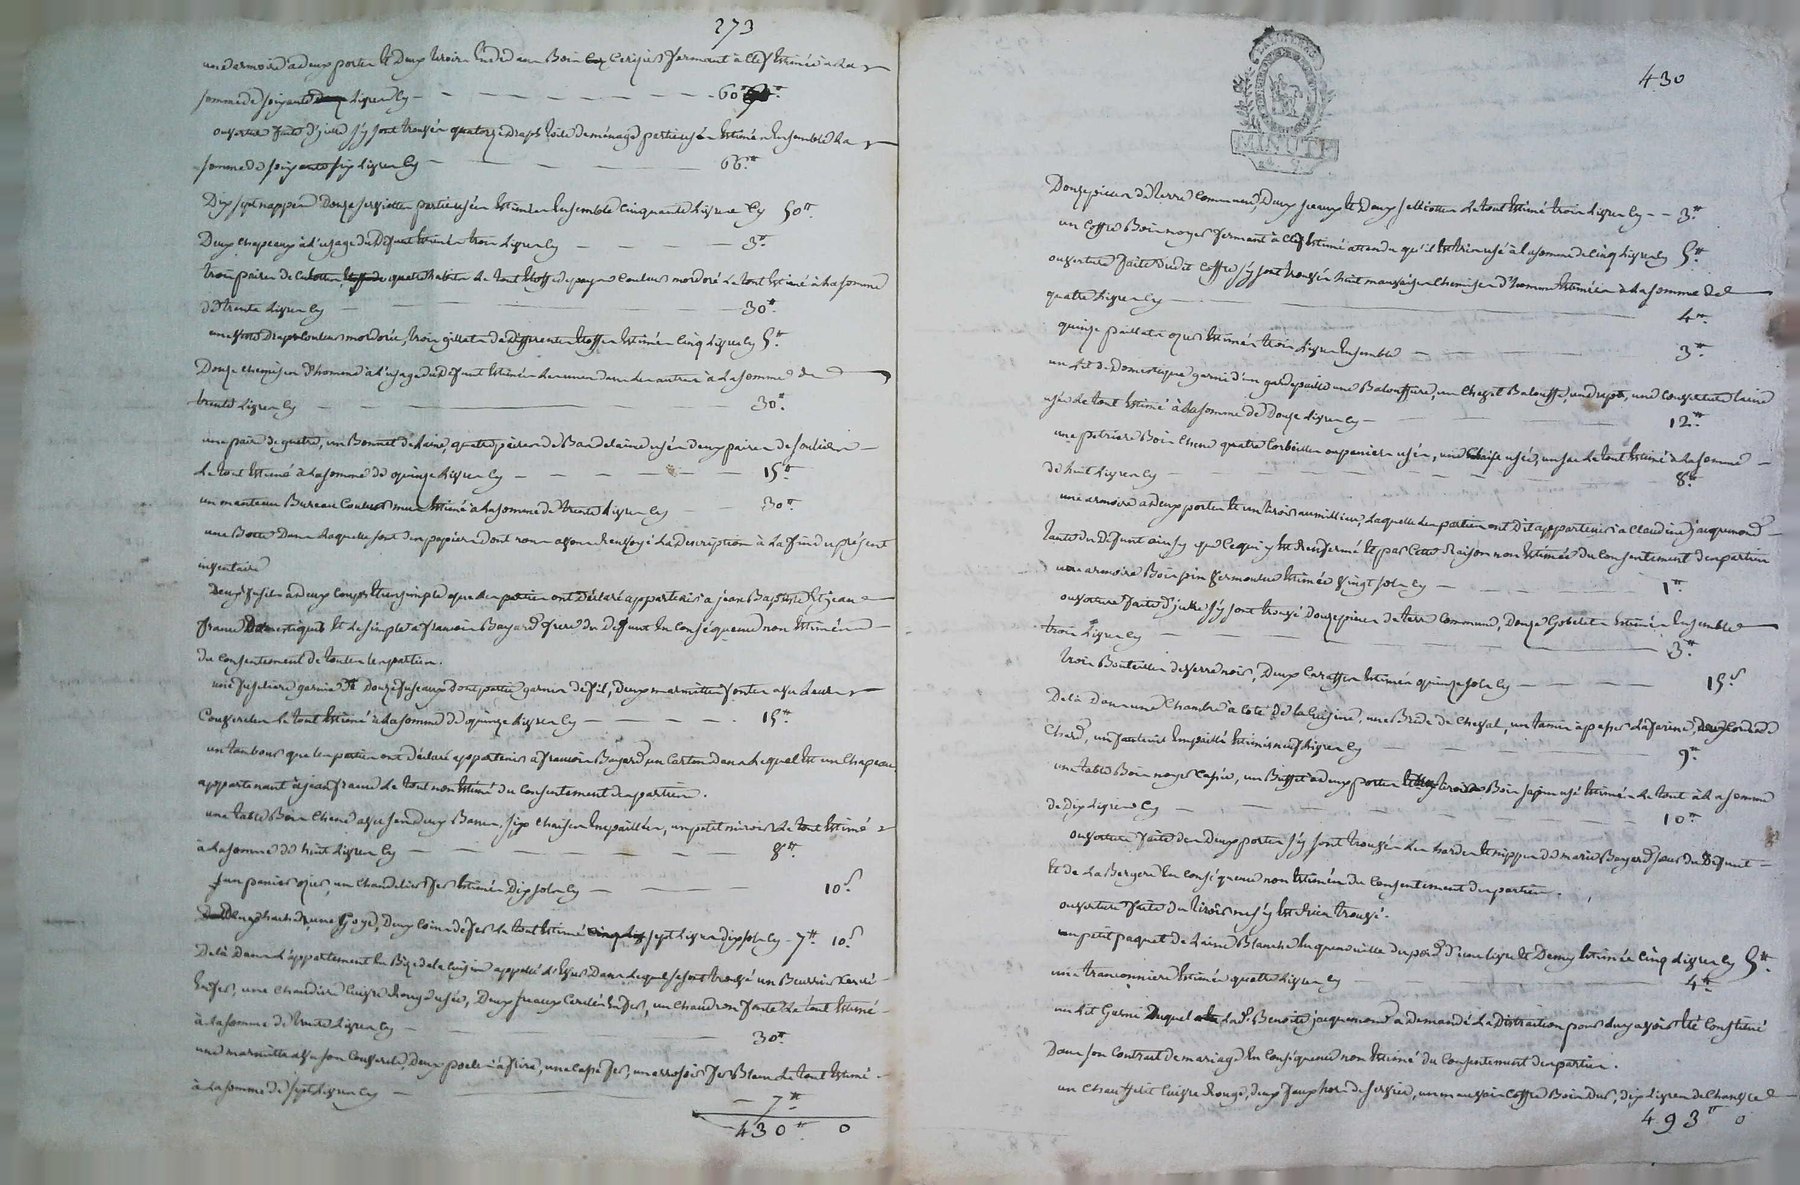 273
une armoire a deux portes et deux tiroirs au Bois Cerizier fermant à clef Estimée à la
somme de soixante Livres Cy — 60#
ouverture faite d'icelle s'y sont trouvés quatorze draps toile de ménage partie usés Estimés Ensemble La
somme de soixante six Livres Cy — 66#
Dix sept nappes Douze serviettes partie usées Estimées Ensemble Cinquante Livres Cy 50#
Deux chapeaux à L'usage du Défunt Estimés trois Livres Cy — 3#
trois paires de Culottes, quatre habits Le tout Etoffe de pays Couleur mordoré Le tout Estimé à La somme
de trente Livres Cy — 30#
une veste Drap Couleur mordorée, trois gillets de différentes Etoffes Estimés Cinq Livres Cy 5#
Douze chemises d'homme à L'usage du Défunt Estimées Les unes dans Les autres à La somme de
trente Livres Cy — 30#
une paire de guetre, un Bonnet de Laine, quatre paires de Bas de laine usés deux paires de souliers
Le tout Estimé à La somme de quinze Livres Cy — 15#
un manteau Bureau Couleur mur Estimé à La somme de trente Livres Cy — 30#
une Boete Dans Laquelle sont des papiers dont nous avons Renvoyé La Description à La fin du présent
inventaire
Deux fusils à deux coups et un simple que Les parties ont Déclaré appartenir a jean Baptiste et jean
france Domestiques et Le simple à francois Bayard frere du Défunt En Conséquence non Estimés
du Consentement de toutes Les parties.
Couvercles Le tout Estimé à La somme de quinze Livres Cy — 15#
un tambour que Les parties ont Déclaré appartenir à francois Bayard, un Carton dans Lequel Est un Chapeau
appartenant à jean france Le tout non Estimé du Consentement des parties.
une table Bois Chene avec ses deux Bancs, six chaises Empaillées, un petit miroir Le tout Estimé
à La somme de huit Livres Cy — 8#
un panier ozier, un chandelier fer Estimés Dix sols Cy — 10s
une Goye, Deux Coins de fer Le tout Estimé sept Livres dix sols Cy — 7# 10s
De là Dans L'appartement En Bize de la Cuisine appellé Dans Lequel se sont trouvé un Beurrier Cerclé
En fer, une chaudiere Cuivre Rouge usée, Deux seaux Cerclés En fer, un chaudron fonte Le tout Estimé
à La somme de trente Livres Cy — 30#
une marmitte avec son Couvercle, Deux poeles à frire, une Casse fer, un arrosoir fer Blanc Le tout Estimé
à La somme de sept Livres Cy — 7#
430# 0
430
MINUTE
Douze pieces de terre Commune, Deux seaux et Deux seillottes Le tout Estimé trois Livres Cy — 3#
un Coffre Bois noyer fermant à clef Estimé attendu qu'il Est très usé à La somme de Cinq Livres Cy 5#
ouverture faite dudit Coffre s'y sont trouvées huit mauvaises Chemises d'homme Estimées à La somme de
quatre Livres Cy — 4#
quinze paillats ozier Estimés trois Livres Ensemble — 3#
un Lit de Domestique garni d'un garde paille une Balouffiere, un Chevet Balouffe, un drap, une Couverture Laine
usée Le tout Estimé à La somme de Douze Livres Cy — 12#
une petriere Bois Chene quatre Corbeilles ou paniers usés, une usée, un sac Le tout Estimé à La somme
de huit Livres Cy — 8#
une armoire a deux portes et un tiroir au milieu, Laquelle Les parties ont Dit appartenir à Claudine jacquemond
tante du Défunt ainsy que Ce qui y Est Renfermé Et par Cette Raison non Estimée du Consentement des parties
une armoire Bois pin Estimée vingt sols Cy — 1#
ouverture faite d'icelle s'y sont trouvé douze pieces de terre Commune, Douze Gobelets Estimés Ensemble
trois Livres Cy — 3#
trois Bouteilles de verre noir, Deux Caraffes Estimées quinze sols Cy — 15s
De là Dans une Chambre à Coté De la Cuisine, une Bride de Cheval, un tamis à passer La farine,
Char, un fauteuil Empaillé Estimés neuf Livres Cy — 9#
une table Bois noyer Cassée, un Buffet à deux portes Bois sapin usé Estimés Le tout à La somme
de Dix Livres Cy — 10#
ouverture faite des Deux portes s'y sont trouvés Les hardes et nippes de marie Bayard sœur du Défunt
Et de La Bergere En Conséquence non Estimées du Consentement des parties.
ouverture faite du tiroir ne s'y Est Rien trouvé.
un petit paquet de Laine Blanche En quenouille du poids d'une Livre Et Demy Estimée Cinq Livres Cy 5#
une Estimée quatre Livres Cy — 4#
un Lit Garni Duquel La De Benoite jacquemond a demandé La Distraction pour Luy avoir Eté Constitué
Dans son Contrat de mariage En Conséquence non Estimé du Consentement des parties.
un Chauffelit Cuivre Rouge, deux faux hors de service, un mauvais Coffre Bois Dur, dix Livres de Chanvre
493# 0